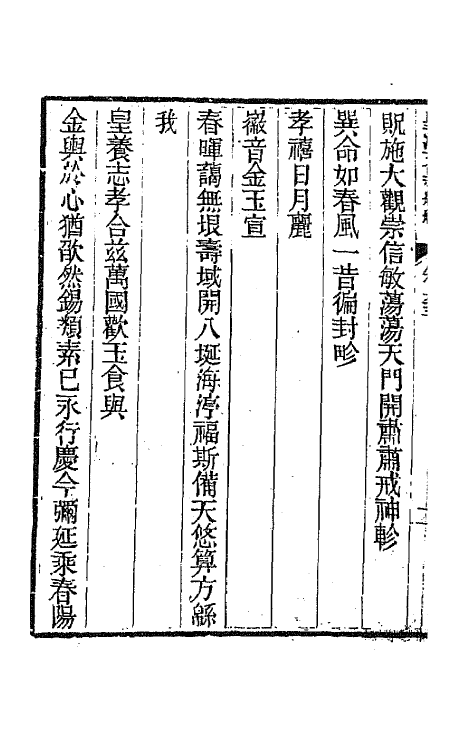 貺施大觀崇信敏蕩蕩天門開肅肅戒神軫
巽命如春風一昔徧封畛
孝禧日月麗
徽音金玉宣
春暉藹無垠壽域開八埏海渟福斯備天悠算方緜
我
皇養志孝合茲萬國歡玉食與
金輿於心猶歉然錫類素已永行慶今彌延乘春陽